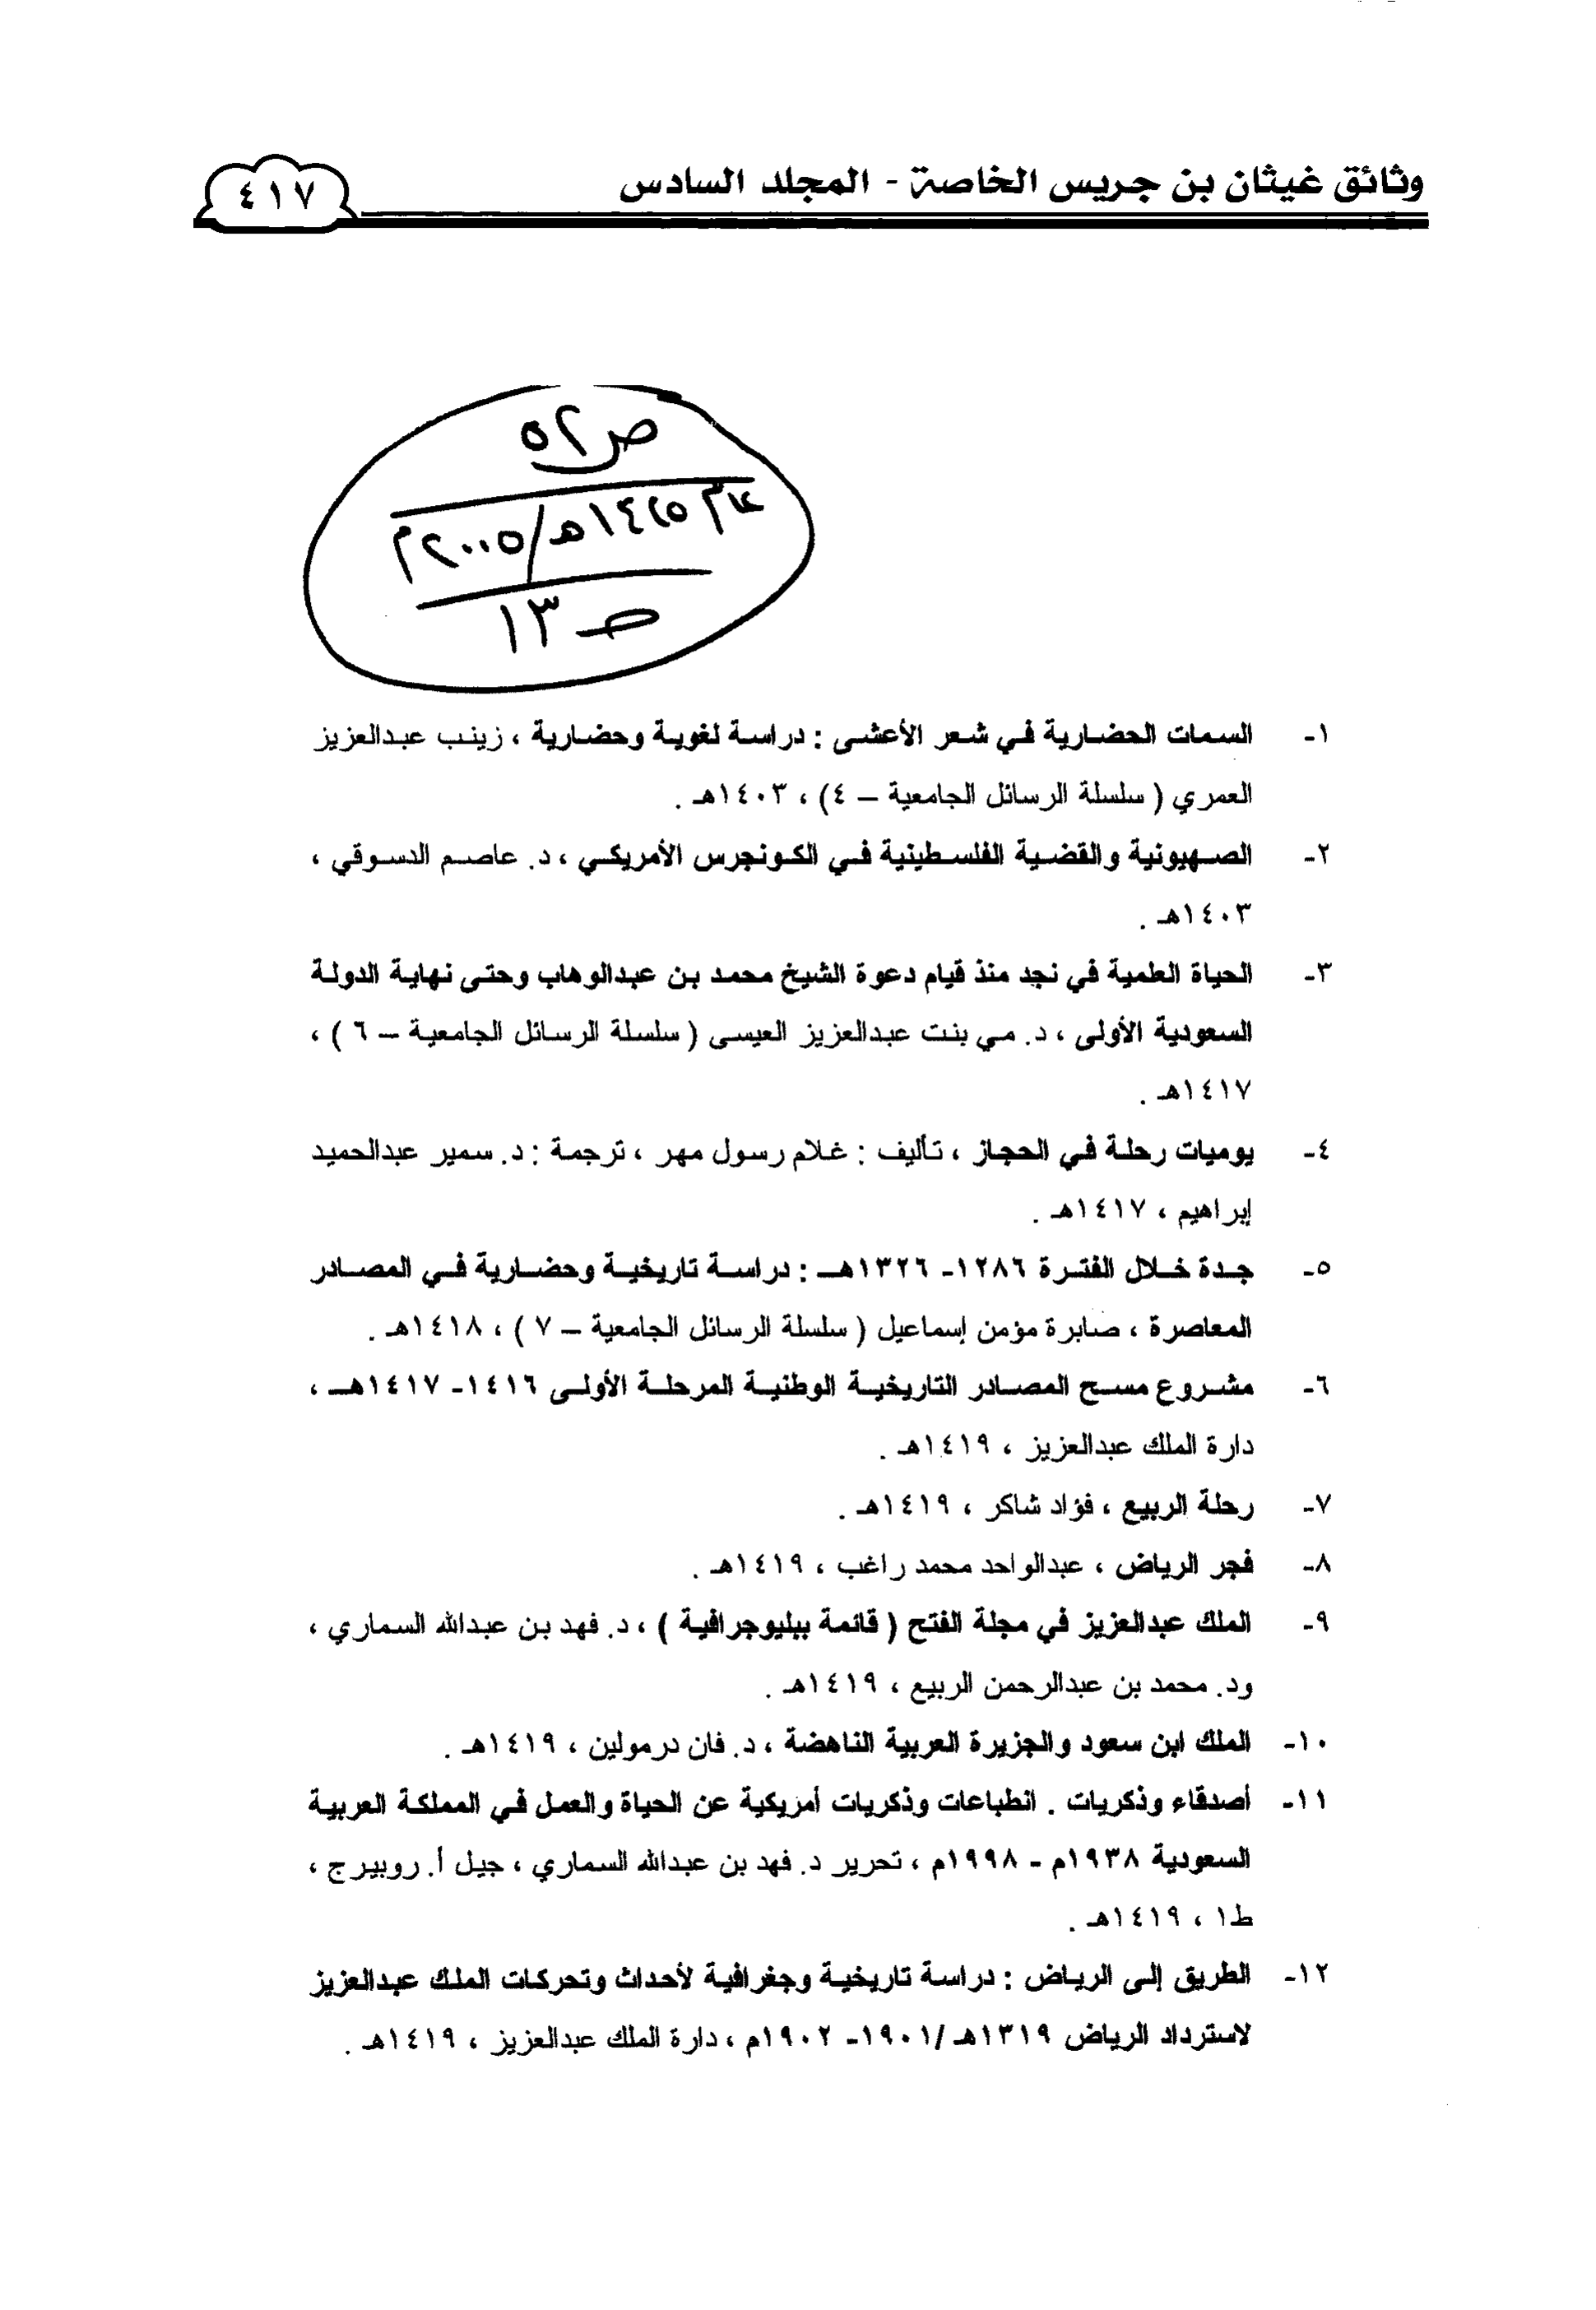 وثائق غيثان بن جريس الخاصة - المجلد السادس
٤١٧
ص٢٥
عام ١٤٢٥هـ/٢٠٠٥م
صـ ١٣
١- السمات الحضارية في شعر الأعشى : دراسة لغوية وحضارية ، زينب عبدالعزيز
العمري ( سلسلة الرسائل الجامعية – ٤) ، ١٤٠٣هـ .
٢- الصهيونية والقضية الفلسطينية في الكونجرس الأمريكي ، د. عاصم الدسوقي ،
١٤٠٣هـ .
٣- الحياة العلمية في نجد منذ قيام دعوة الشيخ محمد بن عبدالوهاب وحتى نهاية الدولة
السعودية الأولى ، د. مي بنت عبدالعزيز العيسى ( سلسلة الرسائل الجامعية – ٦ ) ،
١٤١٧هـ .
٤- يوميات رحلة في الحجاز ، تأليف : غلام رسول مهر ، ترجمة : د. سمير عبدالحميد
إبراهيم ، ١٤١٧هـ .
٥- جدة خلال الفترة ١٢٨٦- ١٣٢٦هـ : دراسة تاريخية وحضارية في المصادر
المعاصرة ، صابرة مؤمن إسماعيل ( سلسلة الرسائل الجامعية – ٧ ) ، ١٤١٨هـ .
٦- مشروع مسح المصادر التاريخية الوطنية المرحلة الأولى ١٤١٦- ١٤١٧هـ ،
دارة الملك عبدالعزيز ، ١٤١٩هـ .
٧- رحلة الربيع ، فؤاد شاكر ، ١٤١٩هـ .
٨- فجر الرياض ، عبدالواحد محمد راغب ، ١٤١٩هـ .
٩- الملك عبدالعزيز في مجلة الفتح ( قائمة ببليوجرافية ) ، د. فهد بن عبدالله السماري ،
ود. محمد بن عبدالرحمن الربيع ، ١٤١٩هـ .
١٠- الملك ابن سعود والجزيرة العربية الناهضة ، د. فان درمولين ، ١٤١٩هـ .
١١- أصدقاء وذكريات . انطباعات وذكريات أمريكية عن الحياة والعمل في المملكة العربية
السعودية ١٩٣٨م - ١٩٩٨م ، تحرير د. فهد بن عبدالله السماري ، جيل أ. روبيرج ،
ط١ ، ١٤١٩هـ .
١٢- الطريق إلى الرياض : دراسة تاريخية وجغرافية لأحداث وتحركات الملك عبدالعزيز
لاسترداد الرياض ١٣١٩هـ /١٩٠١- ١٩٠٢م ، دارة الملك عبدالعزيز ، ١٤١٩هـ .